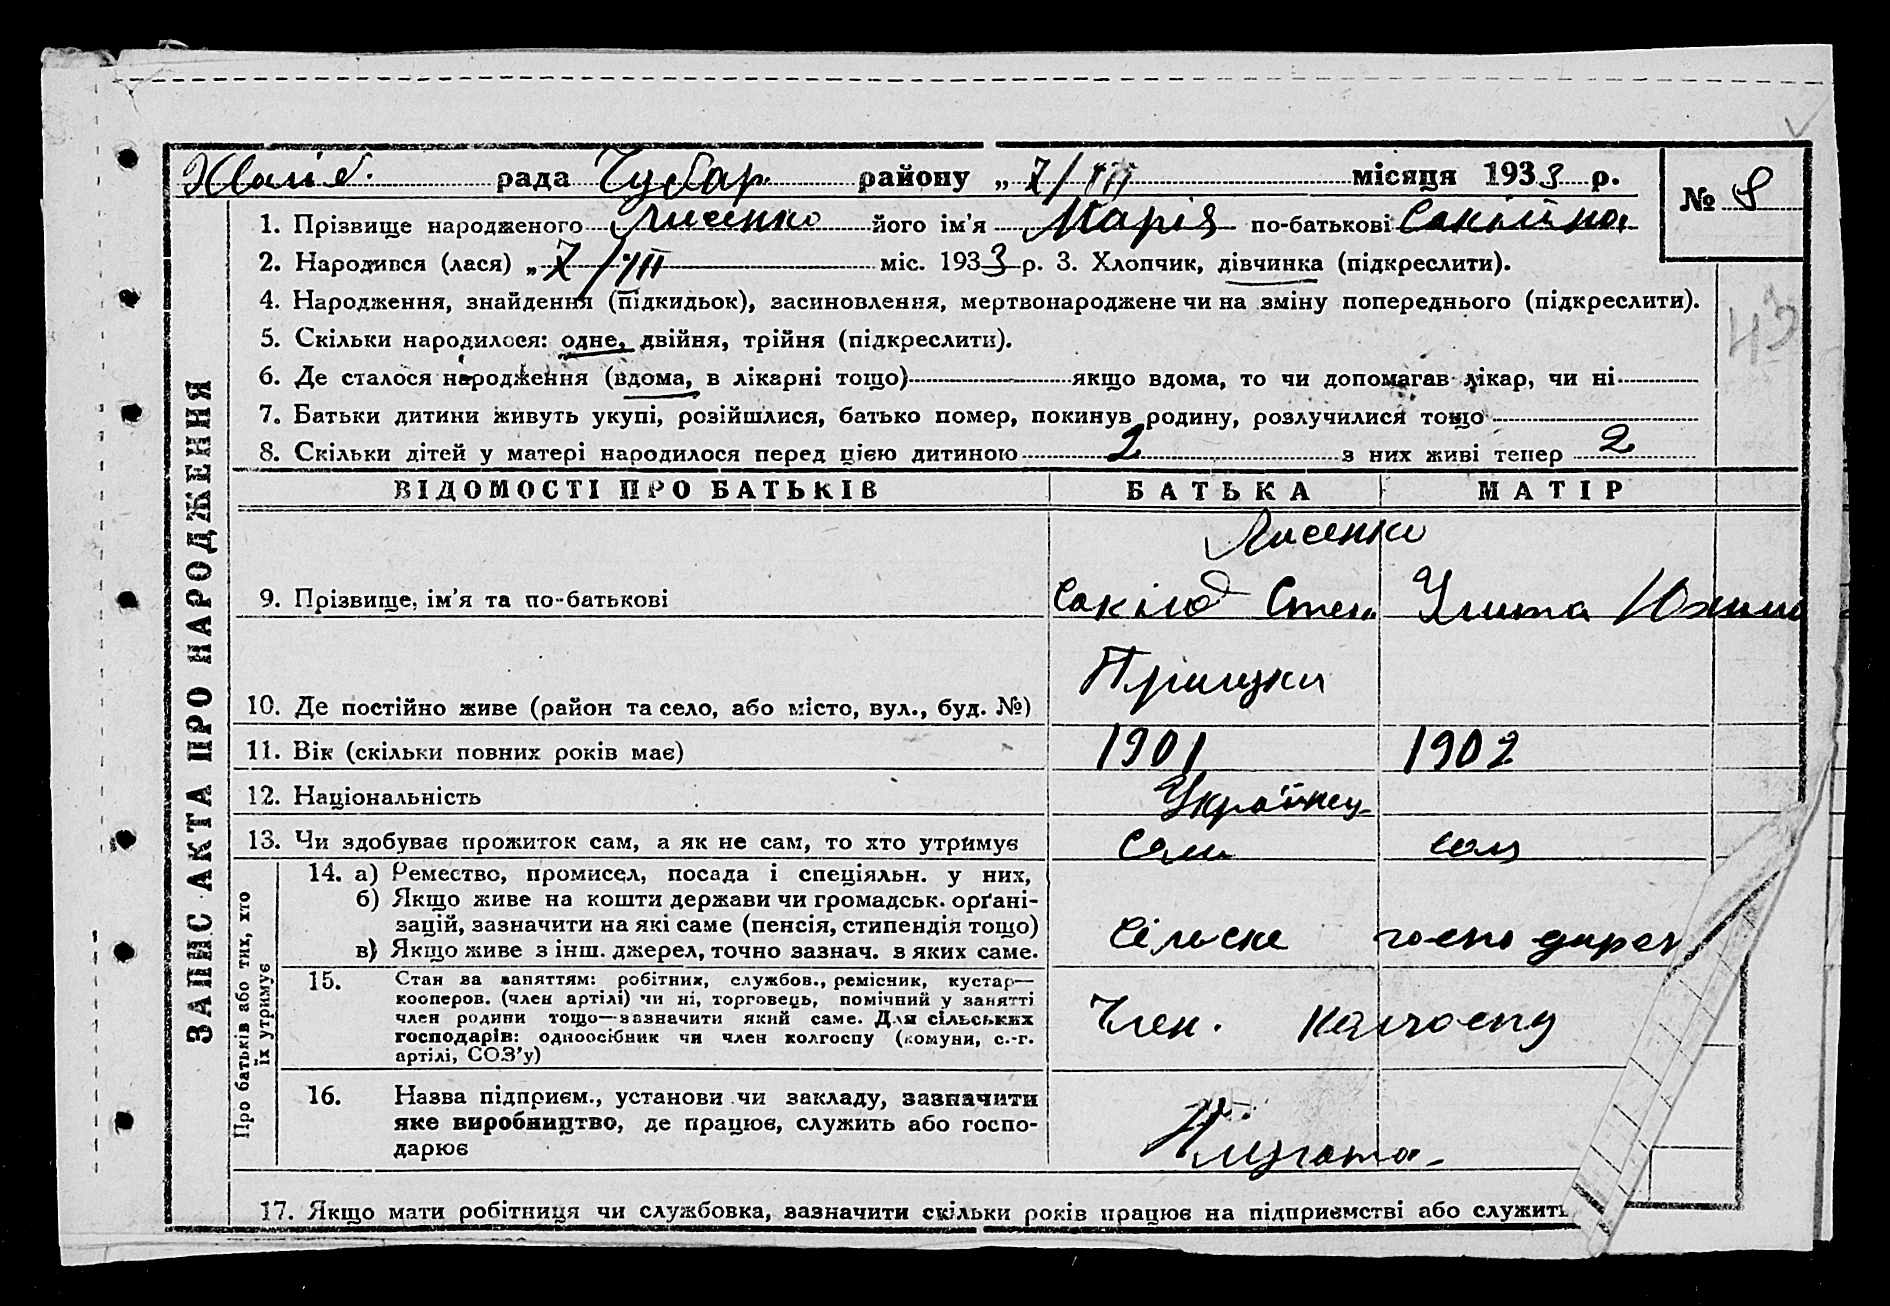 рада Чубар. району „ 7/VII місяця 1933 р.
№ 8
1. Прізвище народженого Лисенко його ім’я Марія по-батькові
2. Народився (лася) „ 7/VII міс. 1933 р. 3. Хлопчик, дівчинка (підкреслити).
4. Народження, знайдення (підкидьок), засиновлення, мертвонароджене чи на зміну попереднього (підкреслити).
43
5. Скільки народилося: одне, двійня, трійня (підкреслити).
6. Де сталося народження (вдома, в лікарні тощо) якщо вдома, то чи допомагав лікар, чи ні
7. Батьки дитини живуть укупі, розійшлися, батько помер, покинув родину, розлучилися тощо
8. Скільки дітей у матері народилося перед цією дитиною 2 з них живі тепер 2
ЗАПИС АКТА ПРО НАРОДЖЕННЯ
ВІДОМОСТІ ПРО БАТЬКІВ БАТЬКА МАТІР
Лисенко
9. Прізвище, ім’я та по-батькові Степ.
10. Де постійно живе (район та село, або місто, вул., буд. №)
11. Вік (скільки повних років має) 1901 1902
12. Національність Українец
13. Чи здобуває прожиток сам, а як не сам, то хто утримує сам сам
Про батьків або тих, хто їх утримує
14. а) Ремество, промисел, посада і спеціяльн. у них,
б) Якщо живе на кошти держави чи громадськ. орґані-
зацій, зазначити на які саме (пенсія, стипендія тощо)
в) Якщо живе з інш. джерел, точно зазнач. з яких саме.
Сільске
15. Стан за заняттям: робітник, службов., ремісник, кустар—
кооперов. (член артілі) чи ні, торговець, помічний у занятті
член родини тощо—зазначити який саме. Для сільських
господарів: одноосібник чи член колгоспу (комуни, с.-г.
артілі, СОЗ’у)
Член. колгоспу
16. Назва підприєм., установи чи закладу, зазначити
яке виробництво, де працює, служить або госпо-
дарює
17. Якщо мати робітниця чи службовка, зазначити скільки років працює на підприємстві або служить